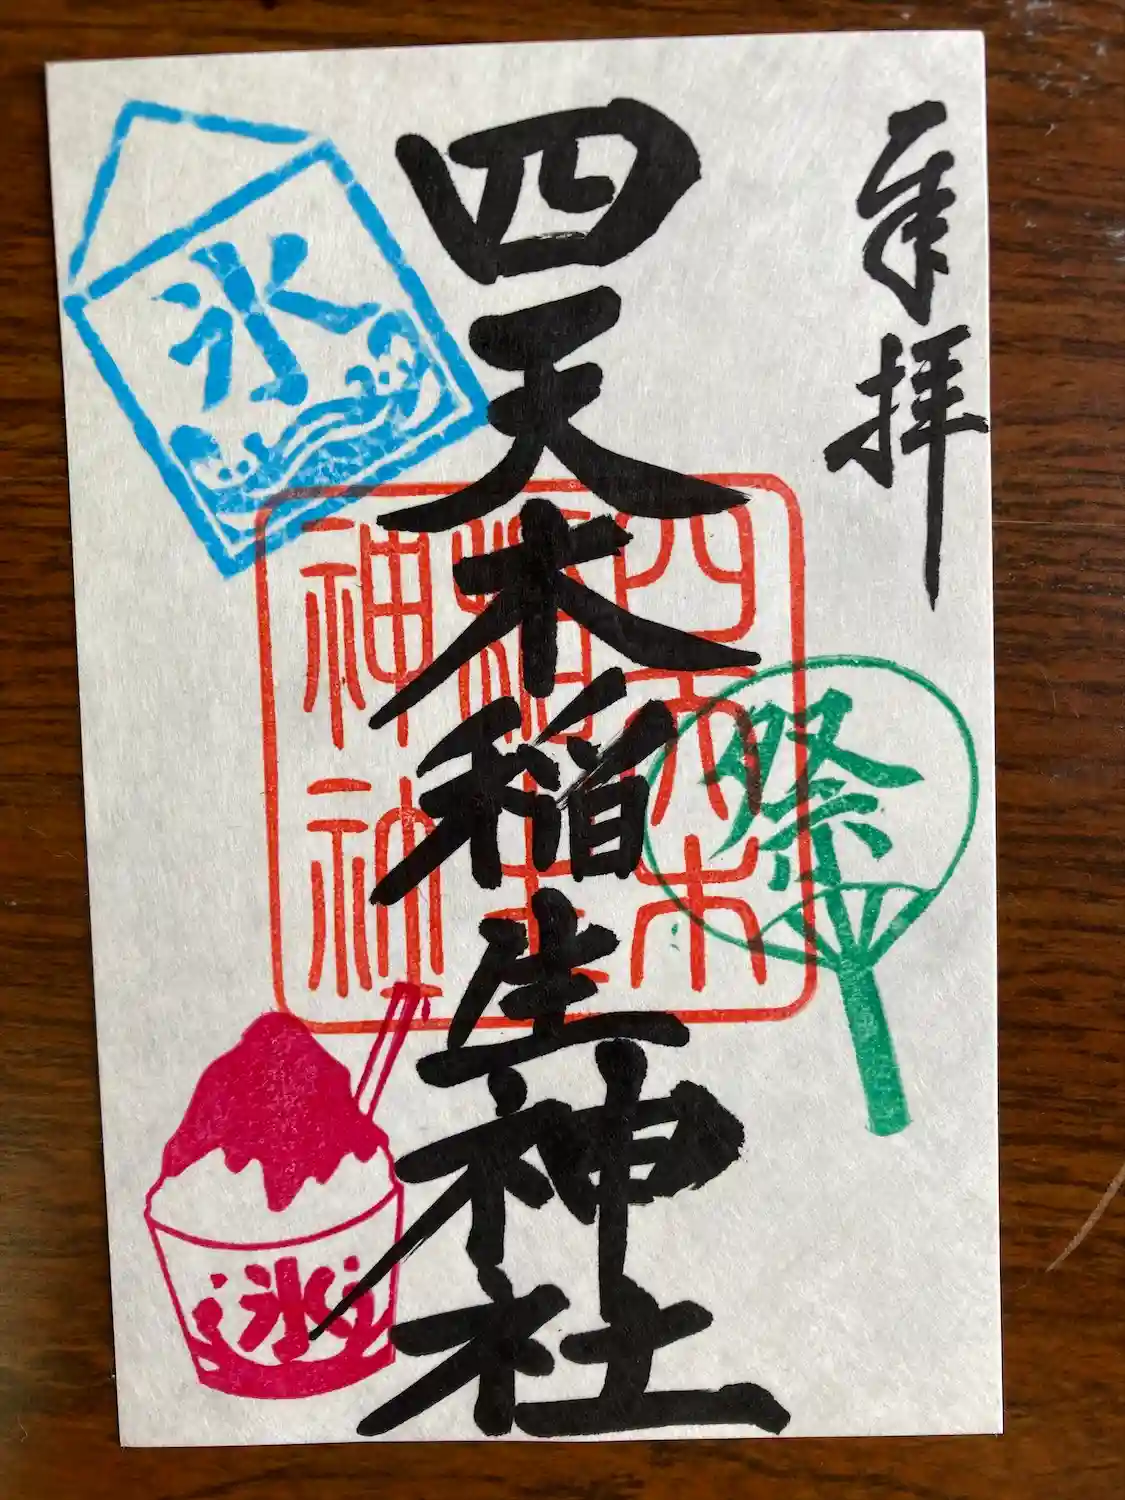 奉拝
四天木稲生神社
四天木
稲生
神社
氷
祭
氷